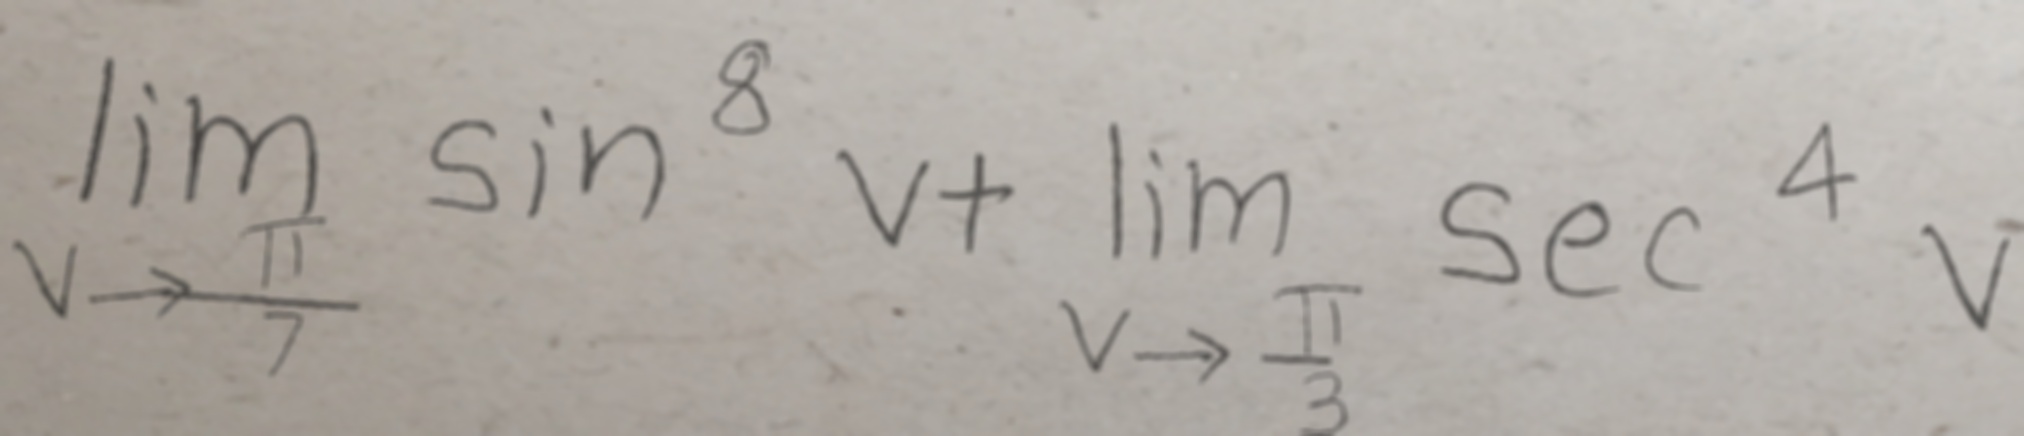 lim_{v→\frac{π}{7}} sin^8 v + lim_{v→\frac{π}{3}} sec^4 v